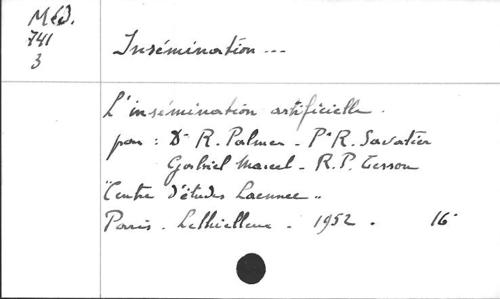 Méd.
741
3
Insémination ...
L'insémination artificielle.
par : Dr R. Palmer - Pr R. Savatier
Gabriel Marcel - R.P. Tesson
"Centre d'études Laennec"
Paris - Lethielleux - 1952. 16°